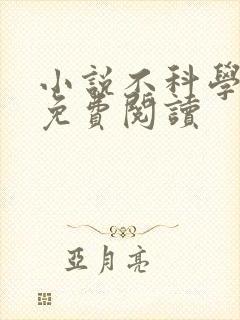 小說不科學
免費閱讀
亞月亮